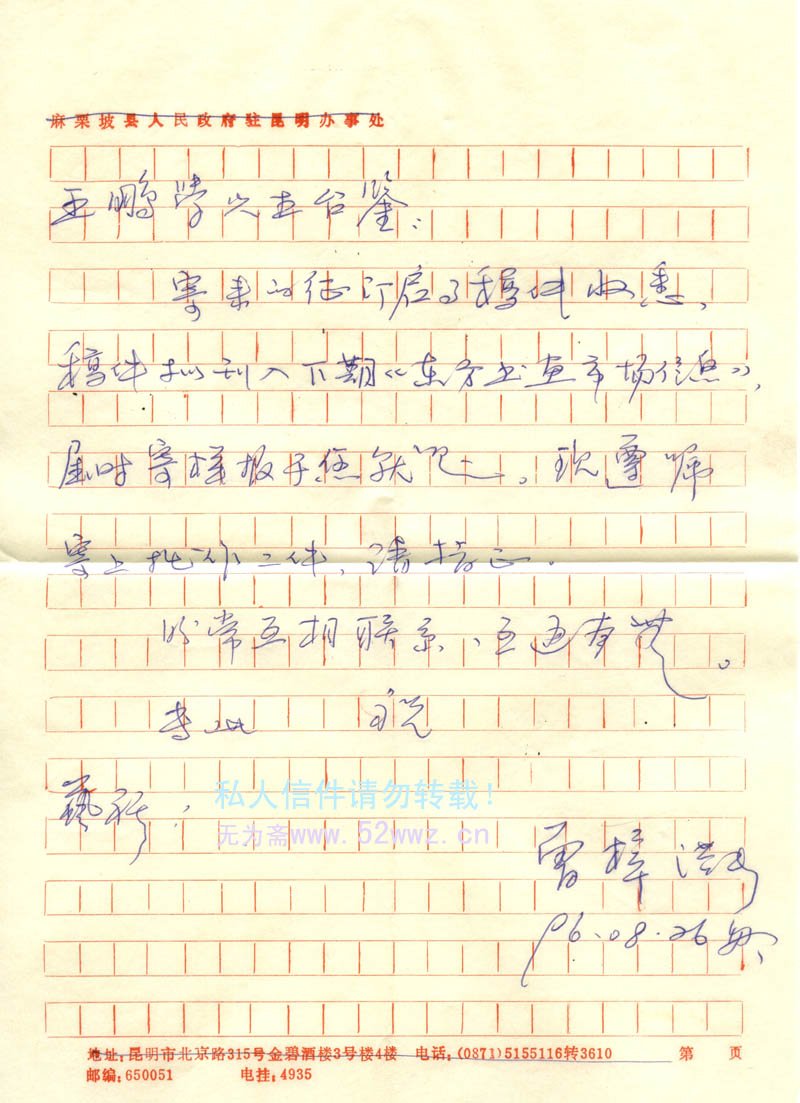 麻栗坡县人民政府驻昆明办事处
王鹏学兄孟台鉴：
寄来的征订启与稿件收悉，
稿件拟刊入下期《东方书画市场信息》，
届时寄样报于您就是。现遵嘱
寄上拙作二件，请指正。
盼常互相联系、互通有無。
专此 敬祝
藝祺！
私人信件请勿转载！
无为斋www.52wwz.cn
曹梓洪
96.08.26
地址：昆明市北京路315号金碧酒楼3号楼4楼 电话：(0871)5155116转3610 第 页
邮编：650051 电挂：4935